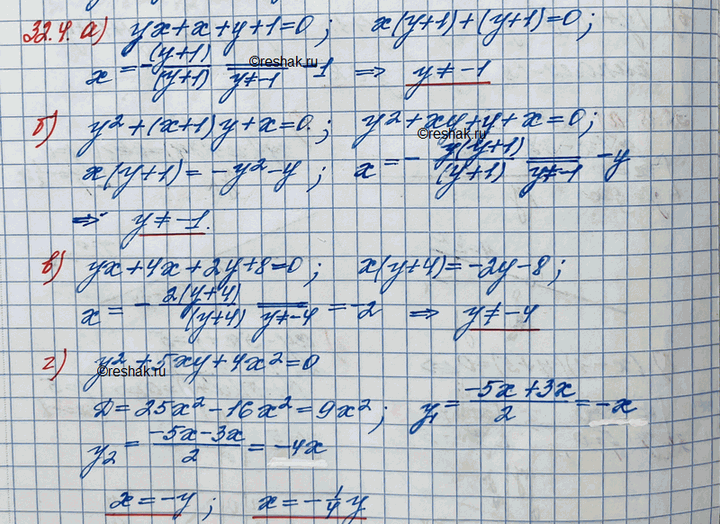 32.4. а) yx+x+y+1=0; x(y+1)+(y+1)=0;
x = -(y+1)/(y+1) = y≠-1 -1 ⇒ y≠-1
©reshak.ru
б) y²+(x+1)y+x=0; y²+xy+y+x=0;
©reshak.ru
x(y+1)=-y²-y; x = - y(y+1)/(y+1) = y≠-1 -y
⇒ y≠-1.
в) yx+4x+2y+8=0; x(y+4)=-2y-8;
x = - 2(y+4)/(y+4) = y≠-4 = -2 ⇒ y≠-4
г) y²+5xy+4x²=0
©reshak.ru
D=25x²-16x²=9x²; y₁ = (-5x+3x)/2 = -x
y₂ = (-5x-3x)/2 = -4x
x=-y; x=-1/4 y